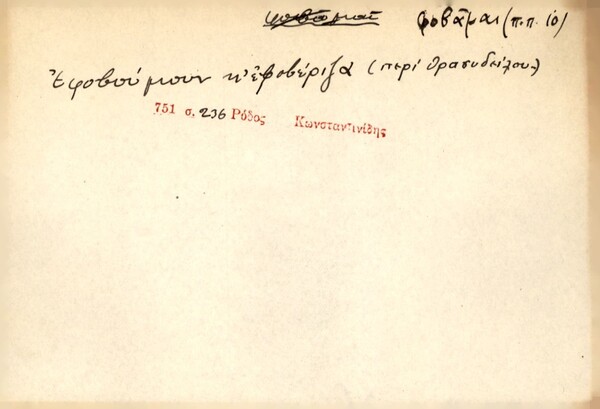 φοβᾶμαι φοβᾶμαι (π.π. 10)
Ἐφοβούμουν κ' ἐφοβέριζα (περί θρασυδείλου)
751 σ. 236 Ρόδος Κωνσταντινίδης